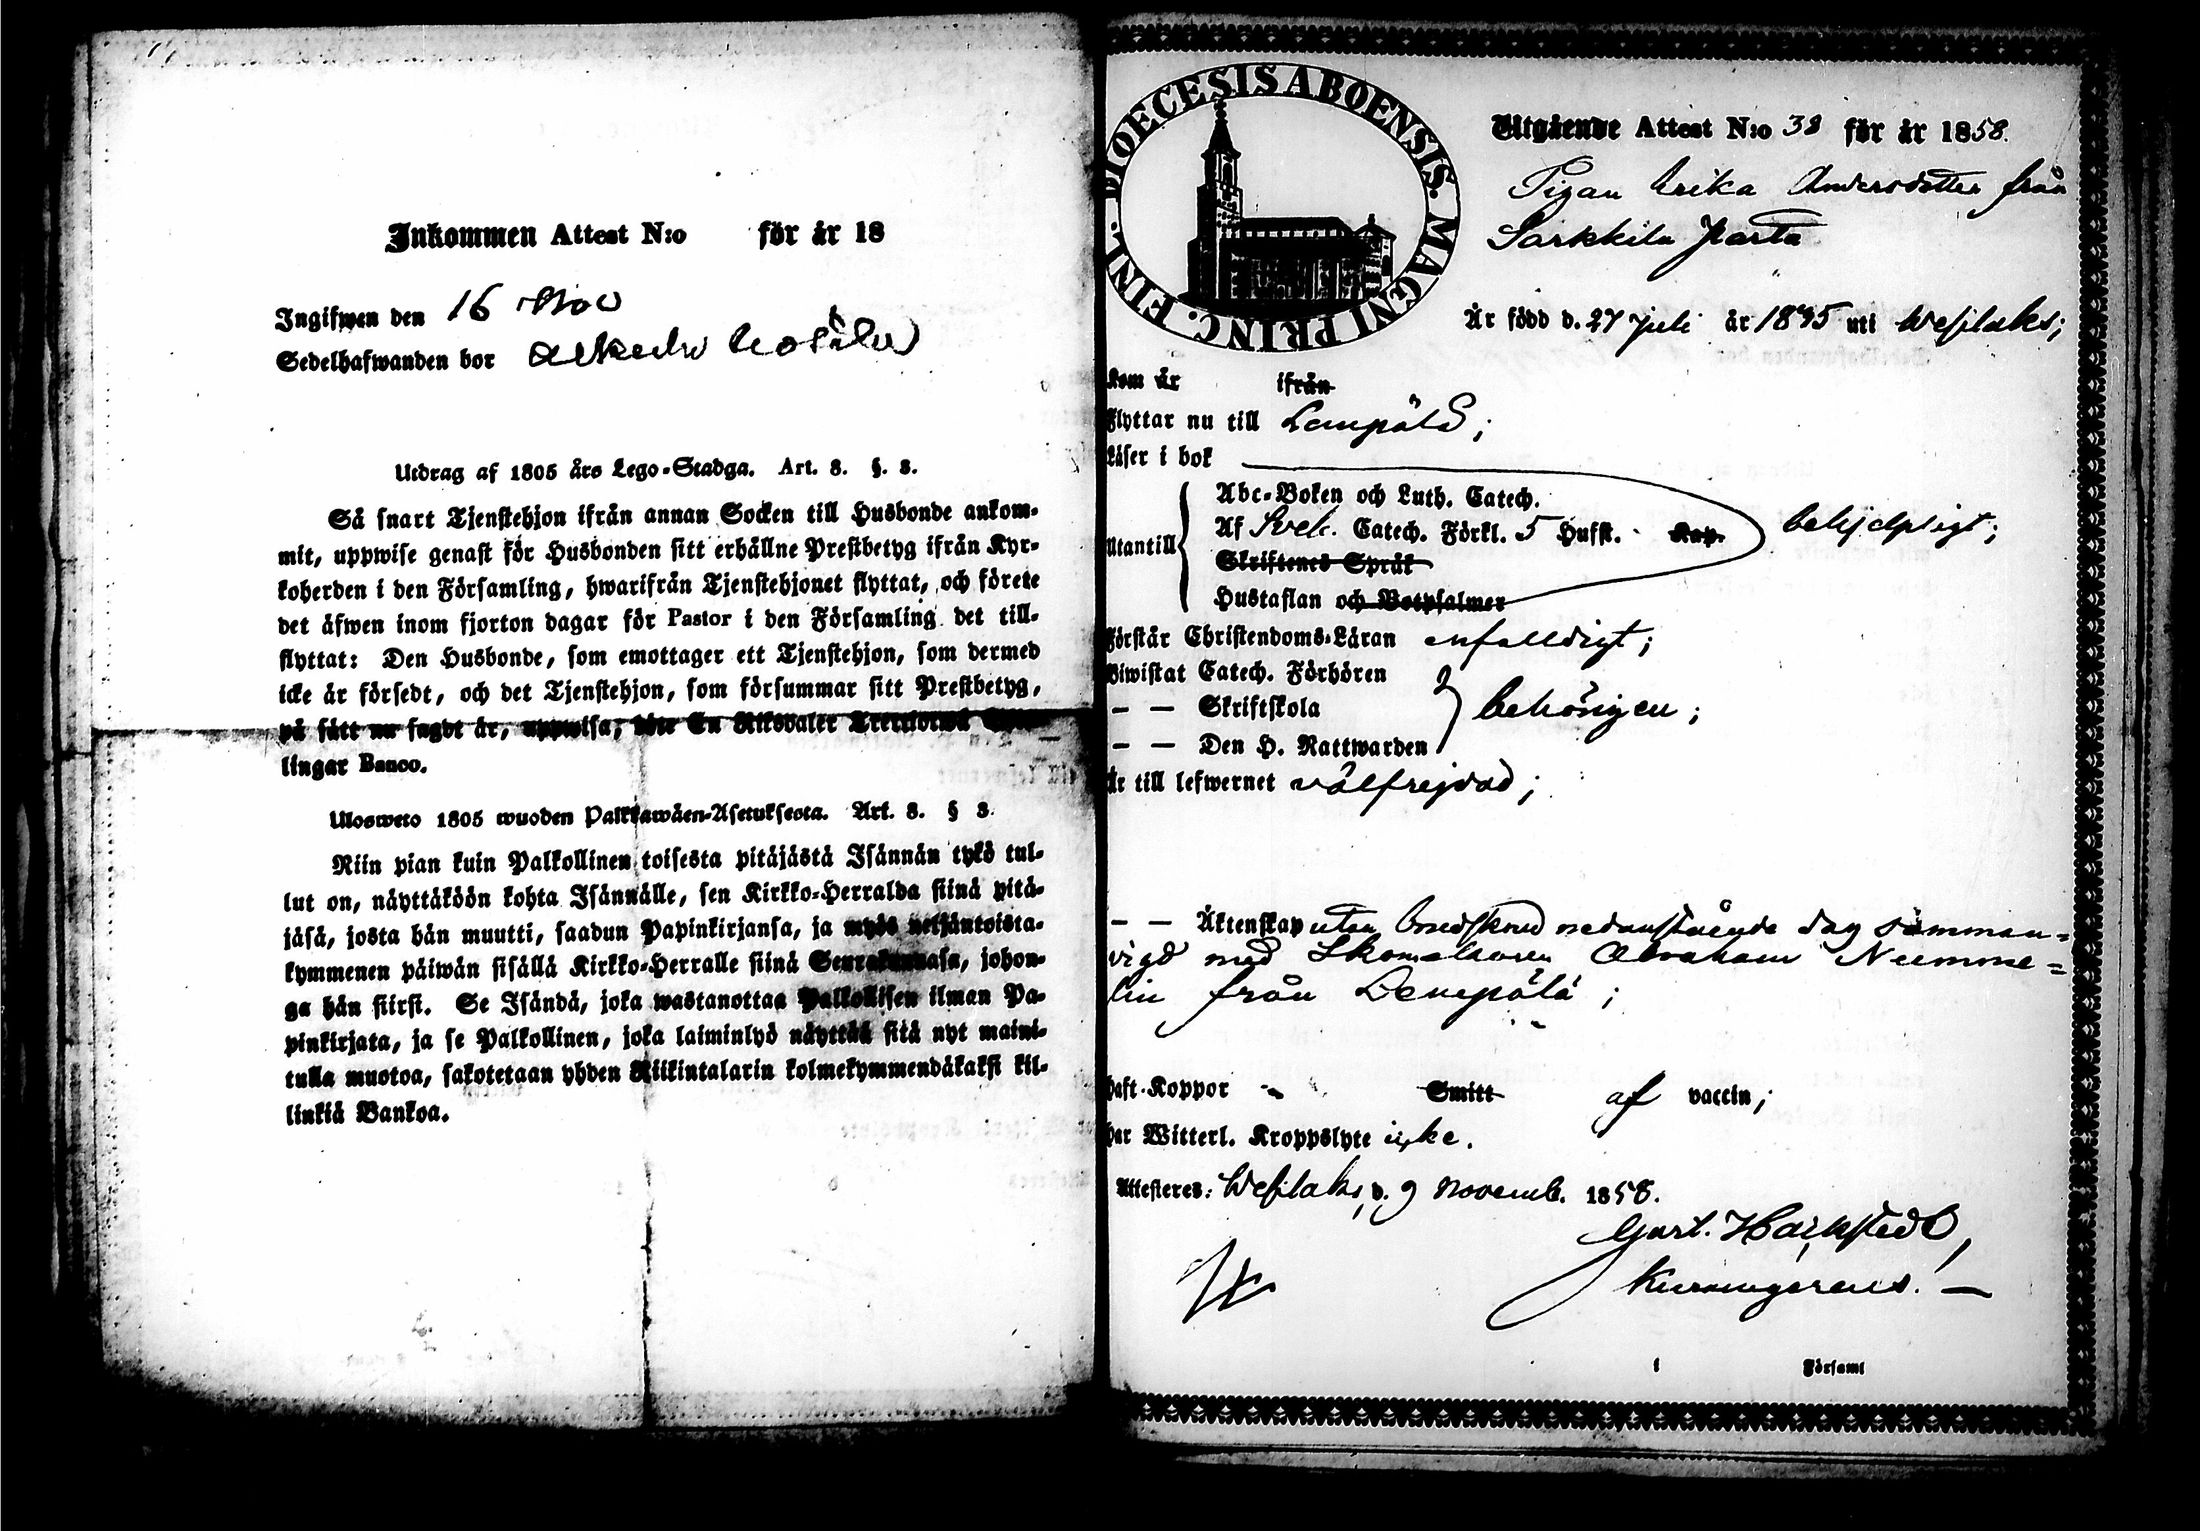 Inkommen Attest N:o för år 18
Ingifwen den 16 Nov
Sedelhafwanden bor
Utdrag af 1805 års Lego-Stadga. Art. 8. §. 3.
Så snart Tjenstehjon ifrån annan Socken till Husbonde ankom-
mit, uppwise genast för Husbonden sitt erhållne Prestbetyg ifrån Kyr-
koherden i den Församling, hwarifrån Tjenstehjonet flyttat, och förete
det äfwen inom fjorton dagar för Pastor i den Församling det till-
flyttat: Den Husbonde, som emottager ett Tjenstehjon, som dermed
icke är försedt, och det Tjenstehjon, som försummar sitt Prestbetyg,
på sätt nu sagdt är, uppwisa, böte En Riksdaler Trettiotwå
lingar Banco.
Ulosweto 1805 wuoden Palkkawäen-Asetuksesta. Art. 8. § 3.
Niin pian kuin Palkollinen toisesta pitäjästä Isännän tykö tul-
lut on, näyttäköön kohta Isännälle, sen Kirkko-Herralda siinä pitä-
jäsä, josta hän muutti, saadun Papinkirjansa, ja myös neljäntoista-
kymmenen päiwän sisällä Kirkko-Herralle siinä Seurakunnasa, johon-
ga hän siirsi. Se Isändä, joka wastanottaa Palkollisen ilman Pa-
pinkirjata, ja se Palkollinen, joka laiminlyö näyttää sitä nyt maini-
tulla muotoa, sakotetaan yhden Riikintalarin kolmekymmendäkaksi kil-
linkiä Bankoa.
DIOECESIS ABOENSIS. MAGNI PRINC. FINL.
Utgående Attest N:o 38 för år 1858.
Pigan Erika Andersdotter från
Sarkkila Parta
Är född d. 27 Juli år 1835 uti Wesilaks;
Kom år ifrån
Flyttar nu till Lempälä;
Läser i bok
Abc-Boken och Luth. Catech.
Utantill Af Sveb. Catech. Förkl. 5 Hufst. Kap. behjelpligt;
Skriftenes Språk
Hustaflan och Botpsalmer
Förstår Christendoms-Läran enfalldigt;
Biwistat Catech. Förhören
— — Skriftskola behörigen;
— — Den H. Nattwarden
Är till lefwernet välfrejdad;
— — Äktenskap utan brudskrud nedanstående dag samman-
vigd med Skomakaren Abraham Nummе-
lin från Lempälä;
haft Koppor Smitt af vaccin;
har Witterl. Kroppslyte icke.
Attesteres: Wesilaks, d. 9 Novemb. 1858.
Gust. Harkstedt,
i Församl